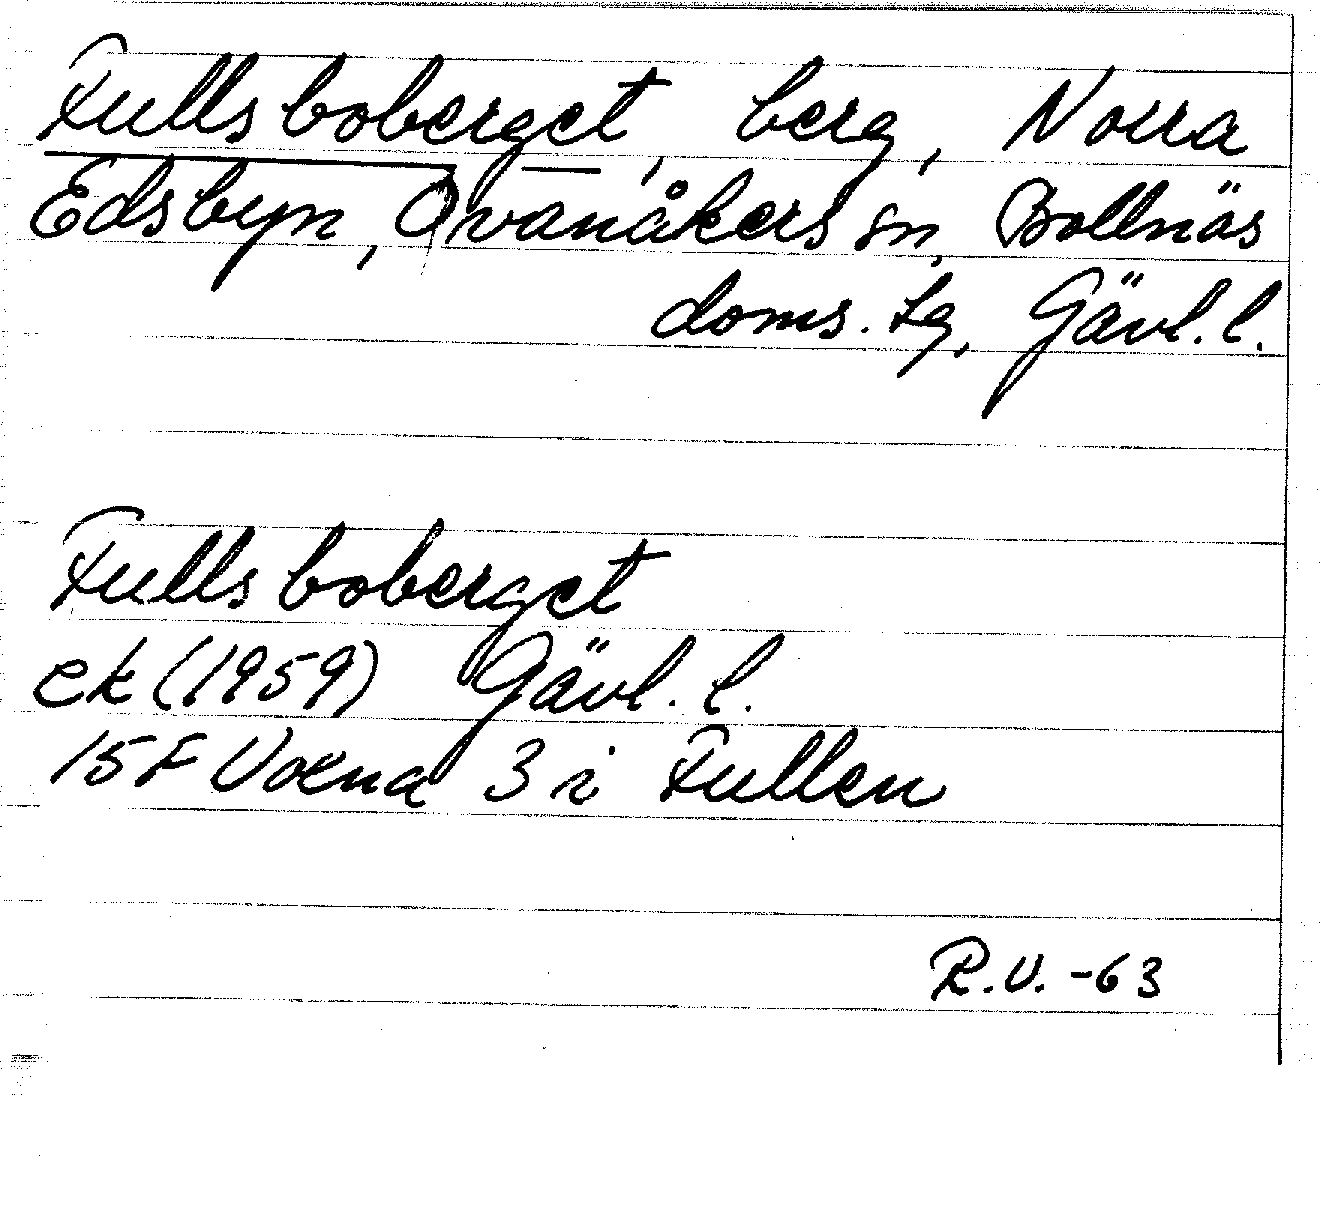 Fullsboberget, berg, Norra
Edsbyn, Ovanåkers sn, Bollnäs
doms. tg, Gävl. l.
Fullsboberget
ek (1959) Gävl. l.
15F Voxna 3 i Fullen
R.V. -63